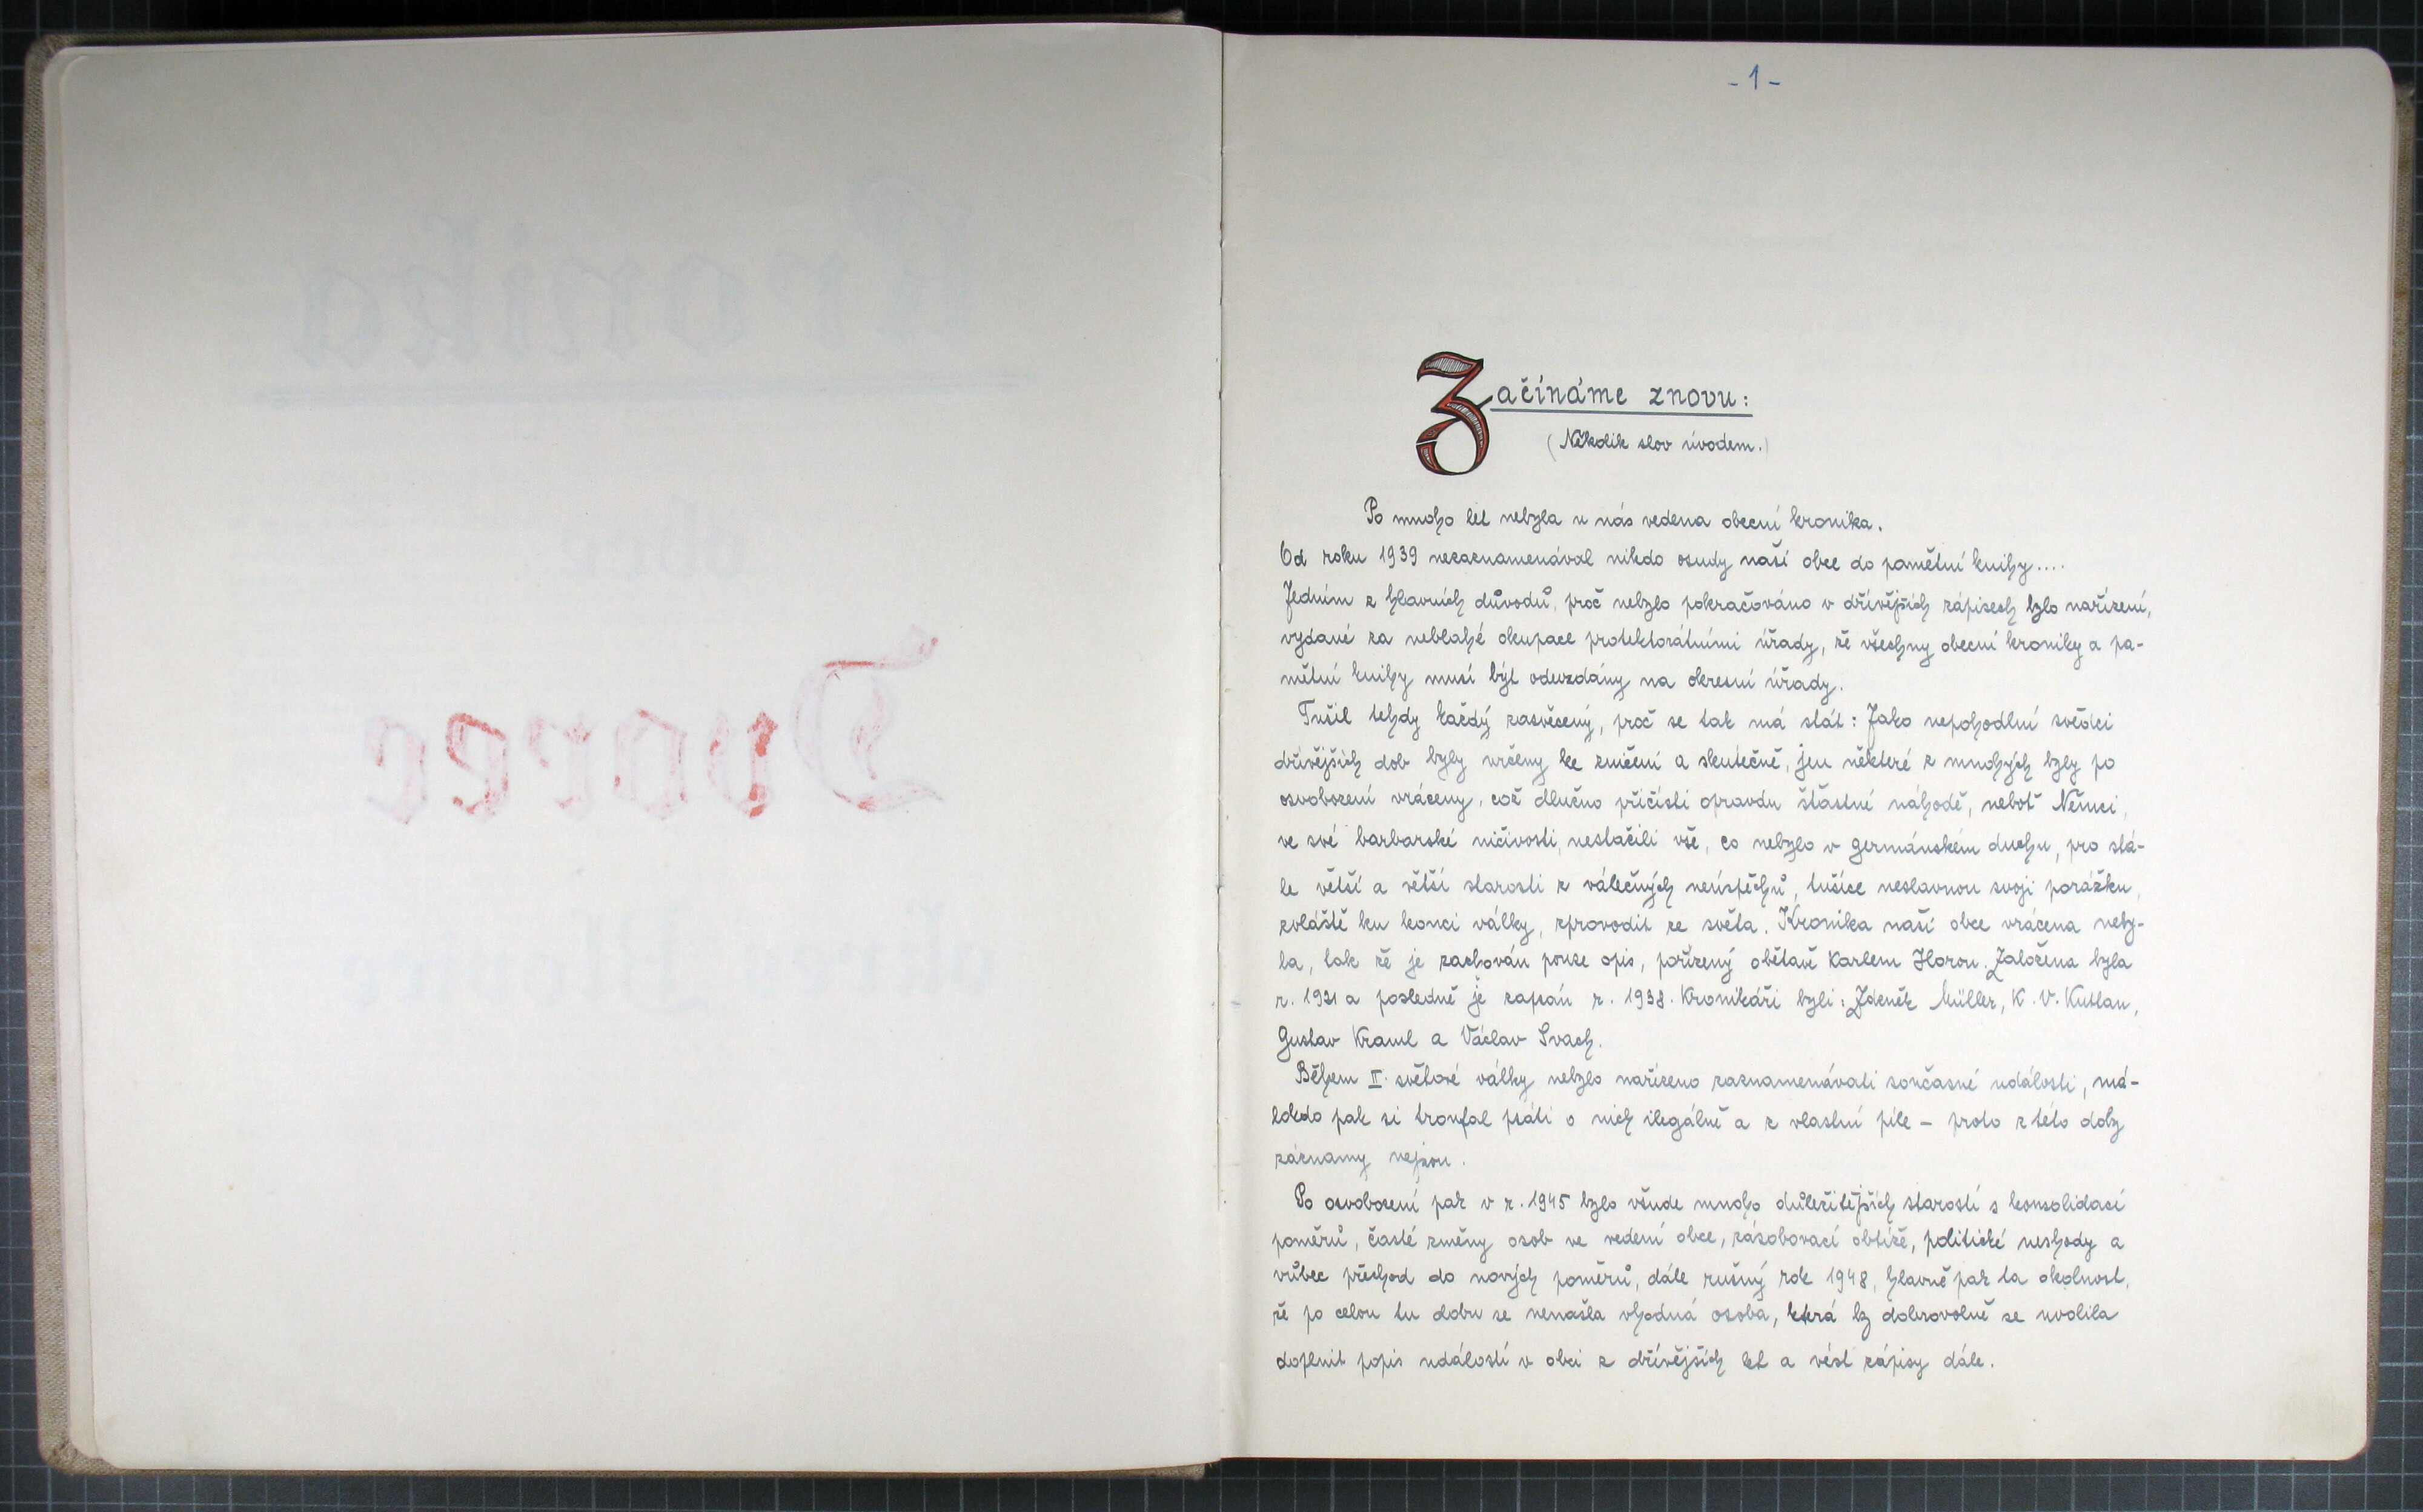 - 1 -
Začínáme znovu:
(Několik slov úvodem.)
Po mnoho let nebyla u nás vedena obecní kronika.
Od roku 1939 nezaznamenával nikdo osudy naší obce do pamětní knihy....
Jedním z hlavních důvodů, proč nebylo pokračováno v dřívějších zápisech bylo nařízení,
vydané za neblahé okupace protektorátními úřady, že všechny obecní kroniky a pa-
mětní knihy musí být odevzdány na okresní úřady.
Tušil tehdy každý zasvěcený, proč se tak má stát: Jako nepohodlní svědci
dřívějších dob byly určeny ke zničení a skutečně, jen některé z mnohých byly po
osvobození vráceny, což dlužno přičísti opravdu šťastné náhodě, neboť Němci,
ve své barbarské ničivosti, nestačili vše, co nebylo v germánském duchu, pro stá-
le větší a větší starosti z válečných neúspěchů, tušíce neslavnou svoji porážku,
zvláště ku konci války, zprovodit ze světa. Kronika naší obce vrácena neby-
la, tak že je zachován pouze opis, pořízený obětavě Karlem Horou. Založena byla
r. 1921 a posledně je zapsán r. 1938. Kronikáři byli: Zdeněk Müller, K. V. Kutlan,
Gustav Kraml a Václav Svach.
Během II. světové války nebylo nařízeno zaznamenávati současné události, má-
lokdo pak si troufal psáti o nich ilegálně a z vlastní píle - proto z této doby
záznamy nejsou.
Po osvobození pak v r. 1945 bylo všude mnoho důležitějších starostí s konsolidací
poměrů, časté změny osob ve vedení obce, zásobovací obtíže, politické neshody a
vůbec přechod do nových poměrů, dále rušný rok 1948, hlavně pak ta okolnost,
že po celou tu dobu se nenašla vhodná osoba, která by dobrovolně se uvolila
doplnit popis událostí v obci z dřívějších let a vést zápisy dále.